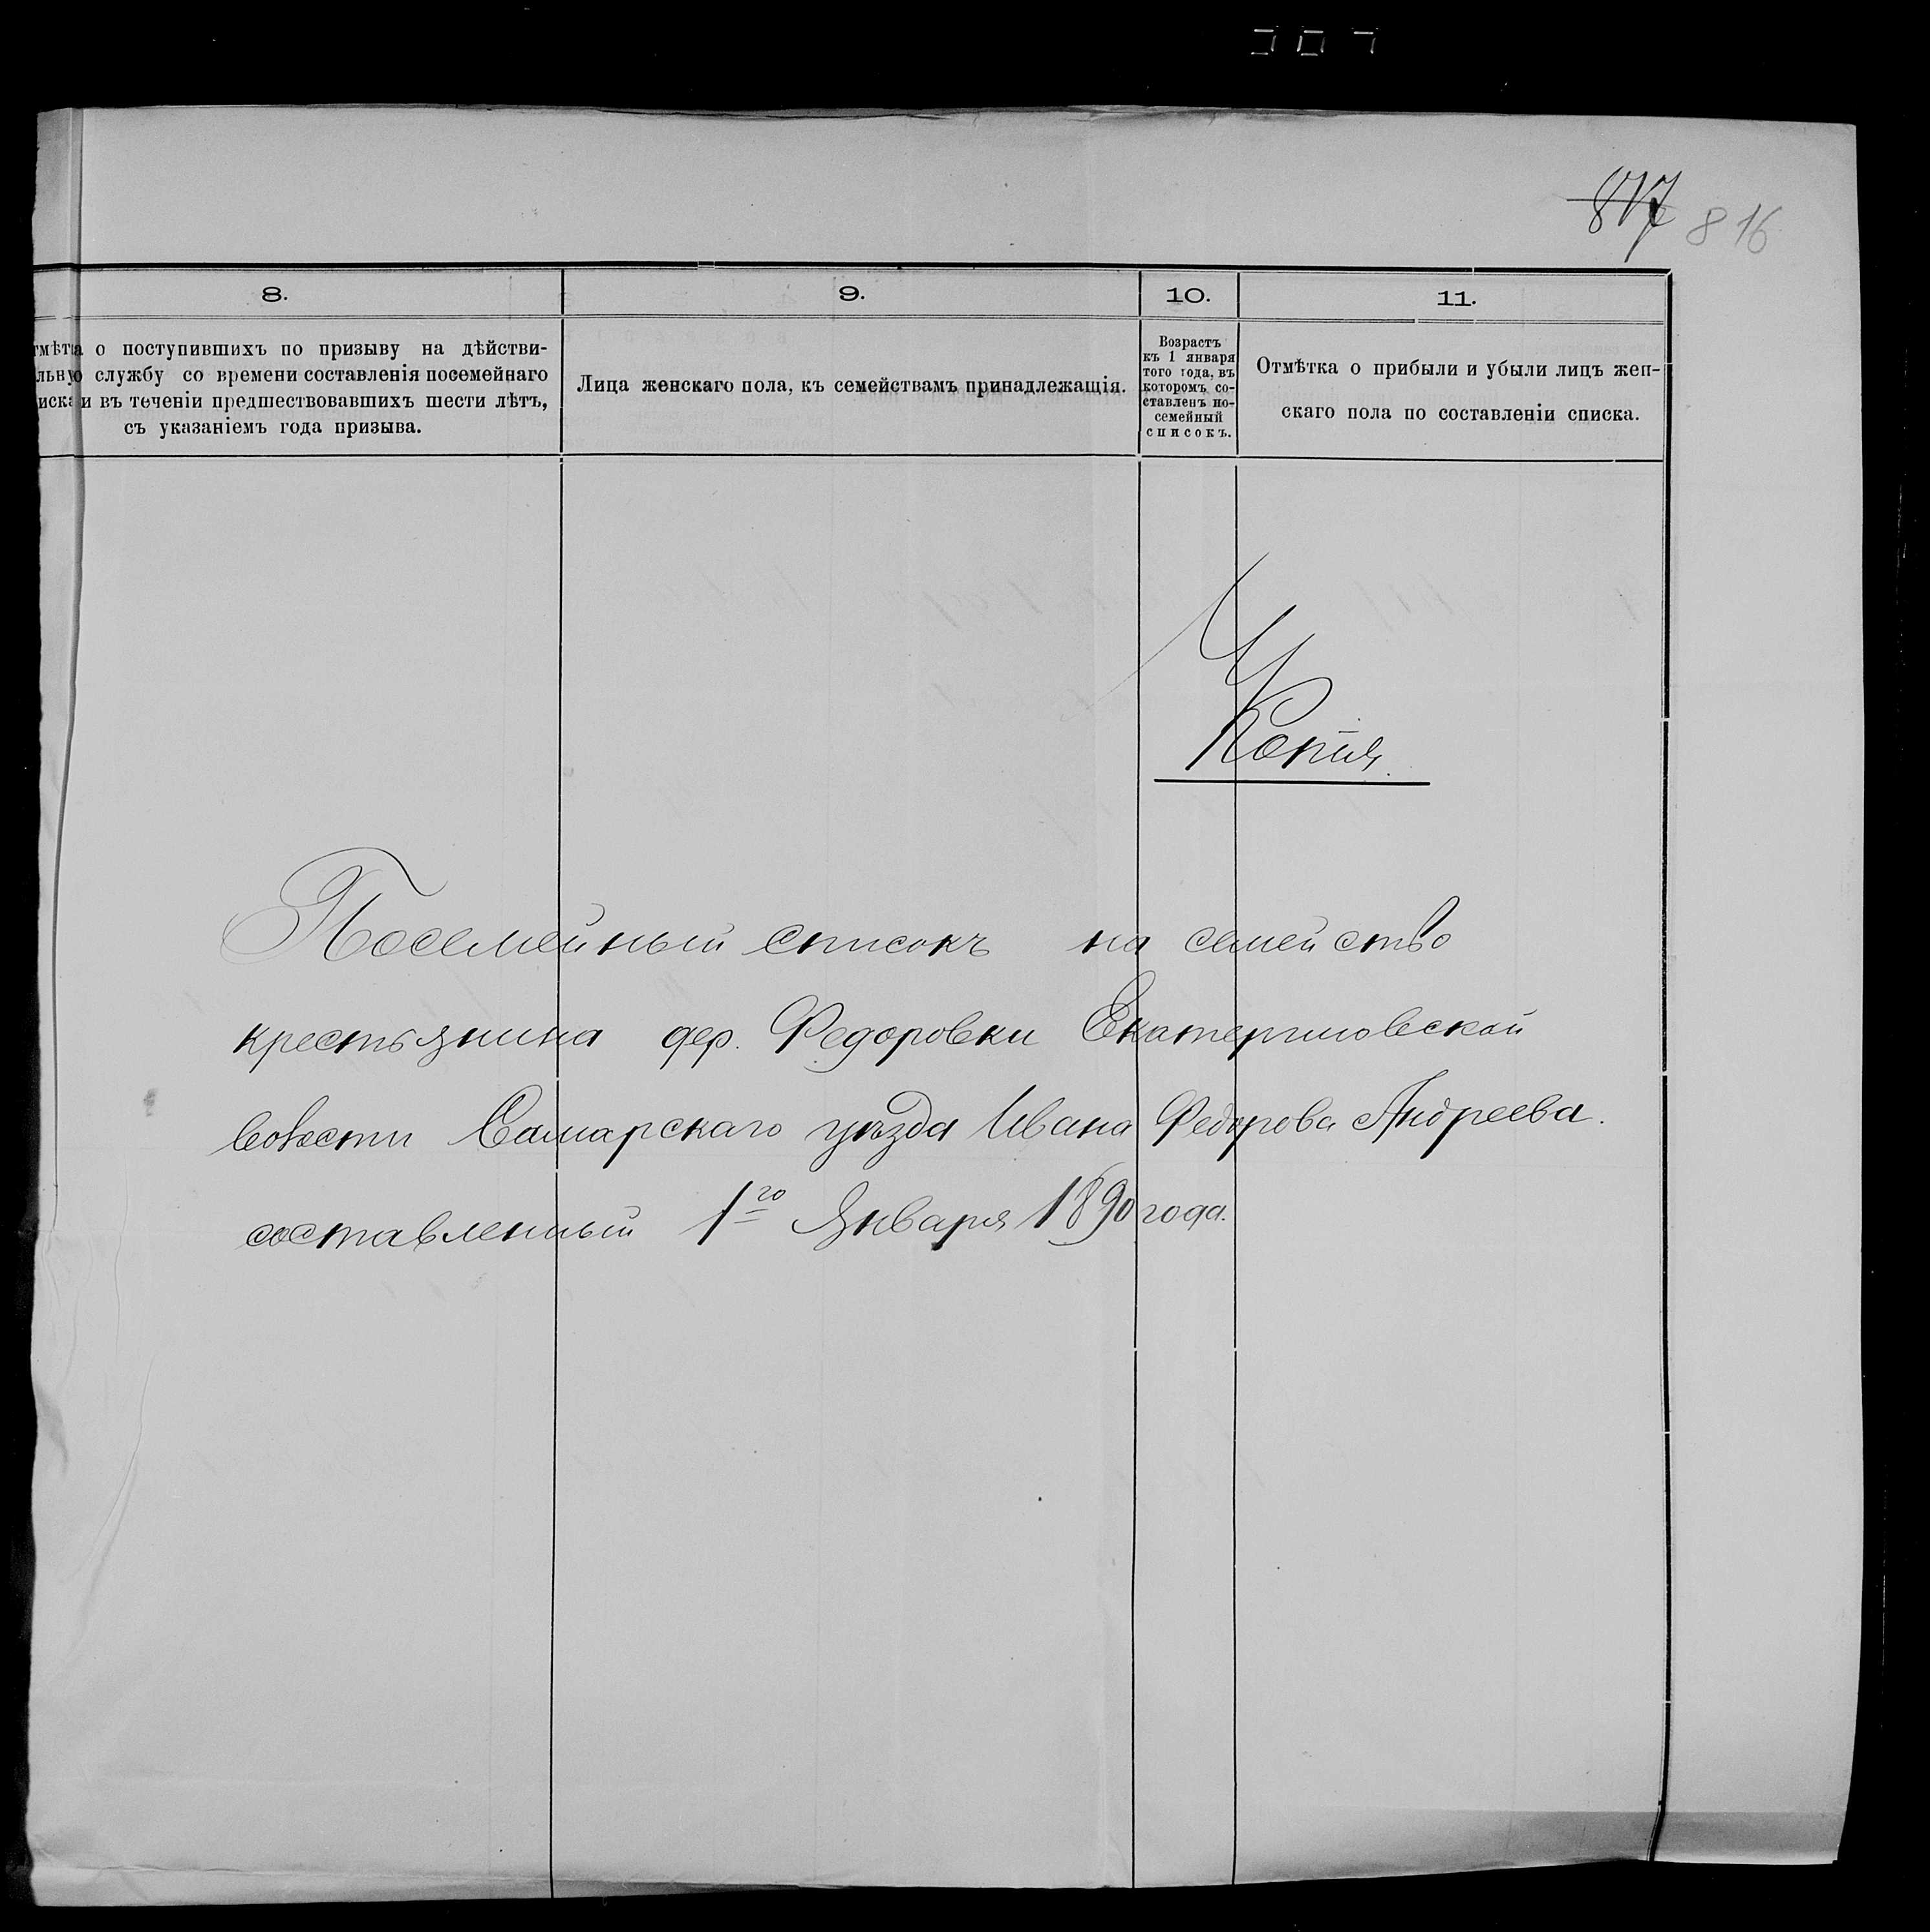 817 816
8. 9. 10. 11.
тмѣтка о поступившихъ по призыву на дѣйстви-
льную службу со времени составленія посемейнаго
иска и въ теченіи предшествовавшихъ шести лѣтъ,
съ указаніемъ года призыва.
Лица женскаго пола, къ семействамъ принадлежащія.
Возрастъ
къ 1 января
того года, въ
которомъ со-
ставленъ по-
семейный
списокъ.
Отмѣтка о прибыли и убыли лицъ жен-
скаго пола по составленіи списка.
Копія.
Посемейный списокъ на семейство
крестьянина дер. Федоровки Екатериновской
волости Самарскаго уѣзда Ивана Федорова Андреева.
составленный 1го Января 1890 года.